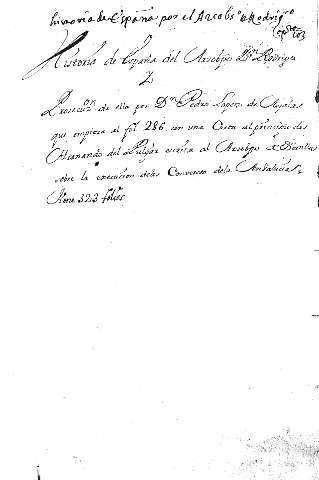 historia de españa por el Arcobpo Rodrigo
Historia de España del Arzobpo Dn Rodrigo
Y
Prosecuzn de ella por Dn Pedro Lopez de Ayala
que empieza al fol 286. con una Carta al principio de
Hernando del Pulgar escrita al Arzobpo de Sevilla
sobre la execucion de los Conversos de la Andalucia
tiene 323 folios